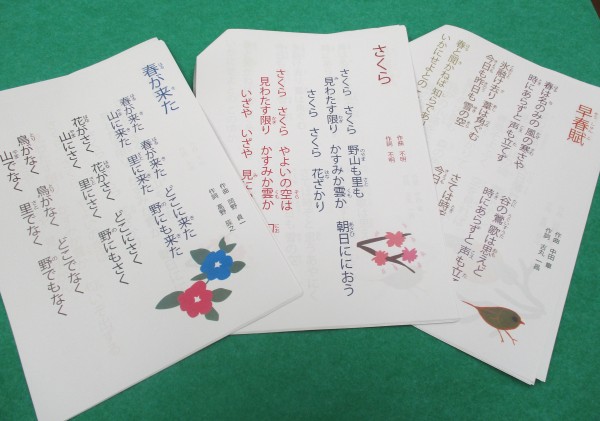 春が来た
作曲 岡野 貞一
作詞 高野 辰之
春が来た 春が来た どこに来た
山に来た 里に来た 野にも来た
花がさく 花がさく どこにさく
山にさく 里にさく 野にもさく
鳥がなく 鳥がなく どこでなく
山でなく 里でなく 野でもなく
さくら
作曲 不明
作詞 不明
さくら さくら 野山も里も
見わたす限り かすみか雲か 朝日ににおう
さくら さくら 花ざかり
さくら さくら やよいの空は
見わたす限り かすみか雲か
いざや いざや 見に
早春賦
作曲 中田 章
作詞 吉丸 一昌
春は名のみの 風の寒さや 谷の鶯 歌は思えど
時にあらずと 声も立てず 時にあらずと 声も立
氷融け去り 葦は角ぐむ さては時
今日も昨日も 雪の空 今日
春と聞かねば 知らで
いかにせよとの